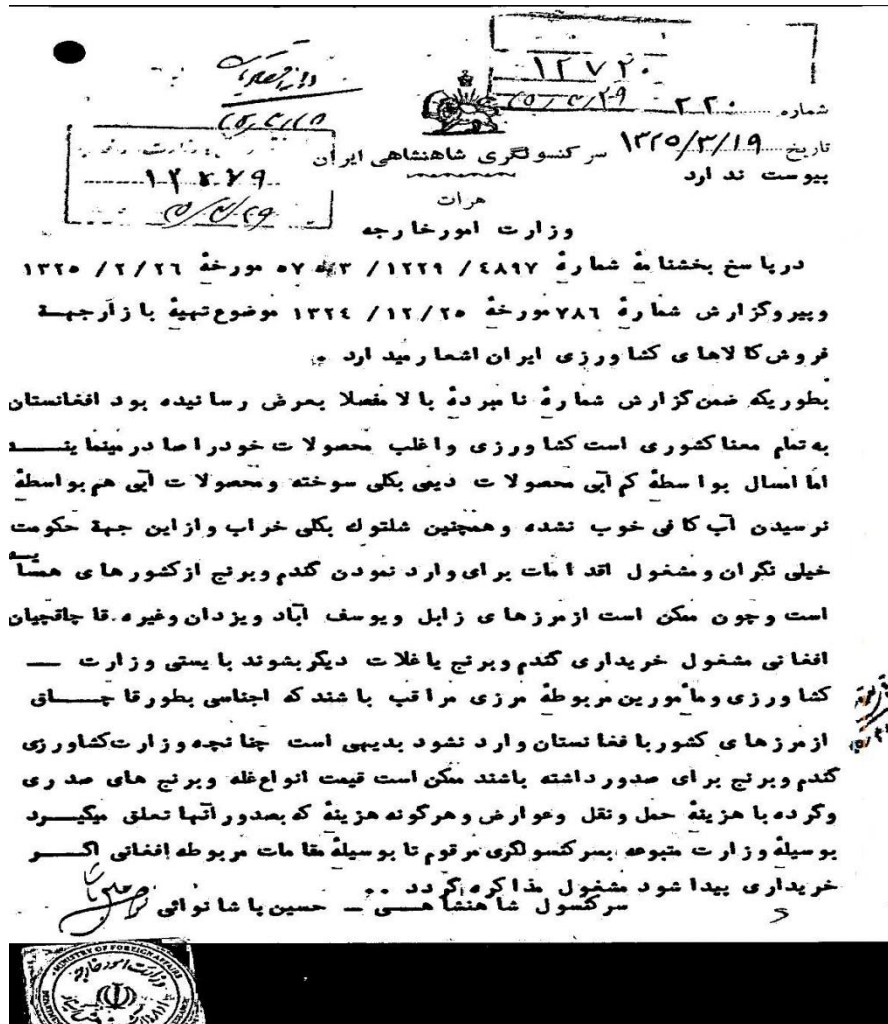 ۱۲۷۲۰
۲۵/۴/۲۹
شماره ۲۲۰
تاریخ ۱۳۲۵/۳/۱۹
پیوست ندارد
سرکنسولگری شاهنشاهی ایران
هرات
وزارت امورخارجه
درپاسخ بخشنامهٔ شمارهٔ ۴۸۹۷/ ۱۲۲۹/ ۵۷ مورخهٔ ۲/۲۶/ ۱۳۲۵
وپیروگزارش شمارهٔ ۷۸۶ مورخهٔ ۱۲/۲۵/ ۱۳۲٤ موضوع تهیهٔ بازارجهــة
فروش کالاهای کشاورزی ایران اشعارمیدارد .
بطوریکه ضمن گزارش شمارهٔ نامبردهٔ بالا مفصلا بعرض رسانیده بود افغانستان
به تمام معنا کشوری است کشاورزی واغلب محصولات خودراصادرمینماینــــد
اما امسال بواسطهٔ کم آبی محصولات دیمی بکلی سوخته ومحصولات آبی هم بواسطهٔ
نرسیدن آب کافی خوب نشده وهمچنین شلتوك بکلی خراب وازاین جهة حکومت
خیلی نگران ومشغول اقدامات برای وارد نمودن گندم وبرنج ازکشورهای همسایه
است وچون ممکن است ازمرزهای زابل ویوسف آباد ویزدان وغیره .قاچاقچیان
افغانی مشغول خریداری گندم وبرنج یاغلات دیگربشوند بایستی وزارت ــ
کشاورزی ومأمورین مربوطهٔ مرزی مراقب باشند که اجناسی بطورقاچــــاق
ازمرزهای کشوربافغانستان وارد نشود بدیهی است چنانچه وزارت کشاورزی
گندم وبرنج برای صدور داشته باشند ممکن است قیمت انواع غله وبرنج های صدری
وگرده با هزینهٔ حمل ونقل وعوارض وهرگونه هزینهٔ که بصدور آنها تعلق میگیــرد
بوسیلهٔ وزارت متبوعه بسرکنسولگری مرقوم تا بوسیلهٔ مقامات مربوطه افغانی اگــــر
خریداری پیدا شود مشغول مذاکره گردد ..
سرکنسول شاهنشاهــی ــ حسین پاشا نوائی
MINISTRY OF FOREIGN AFFAIRS
وزارت امور خارجه